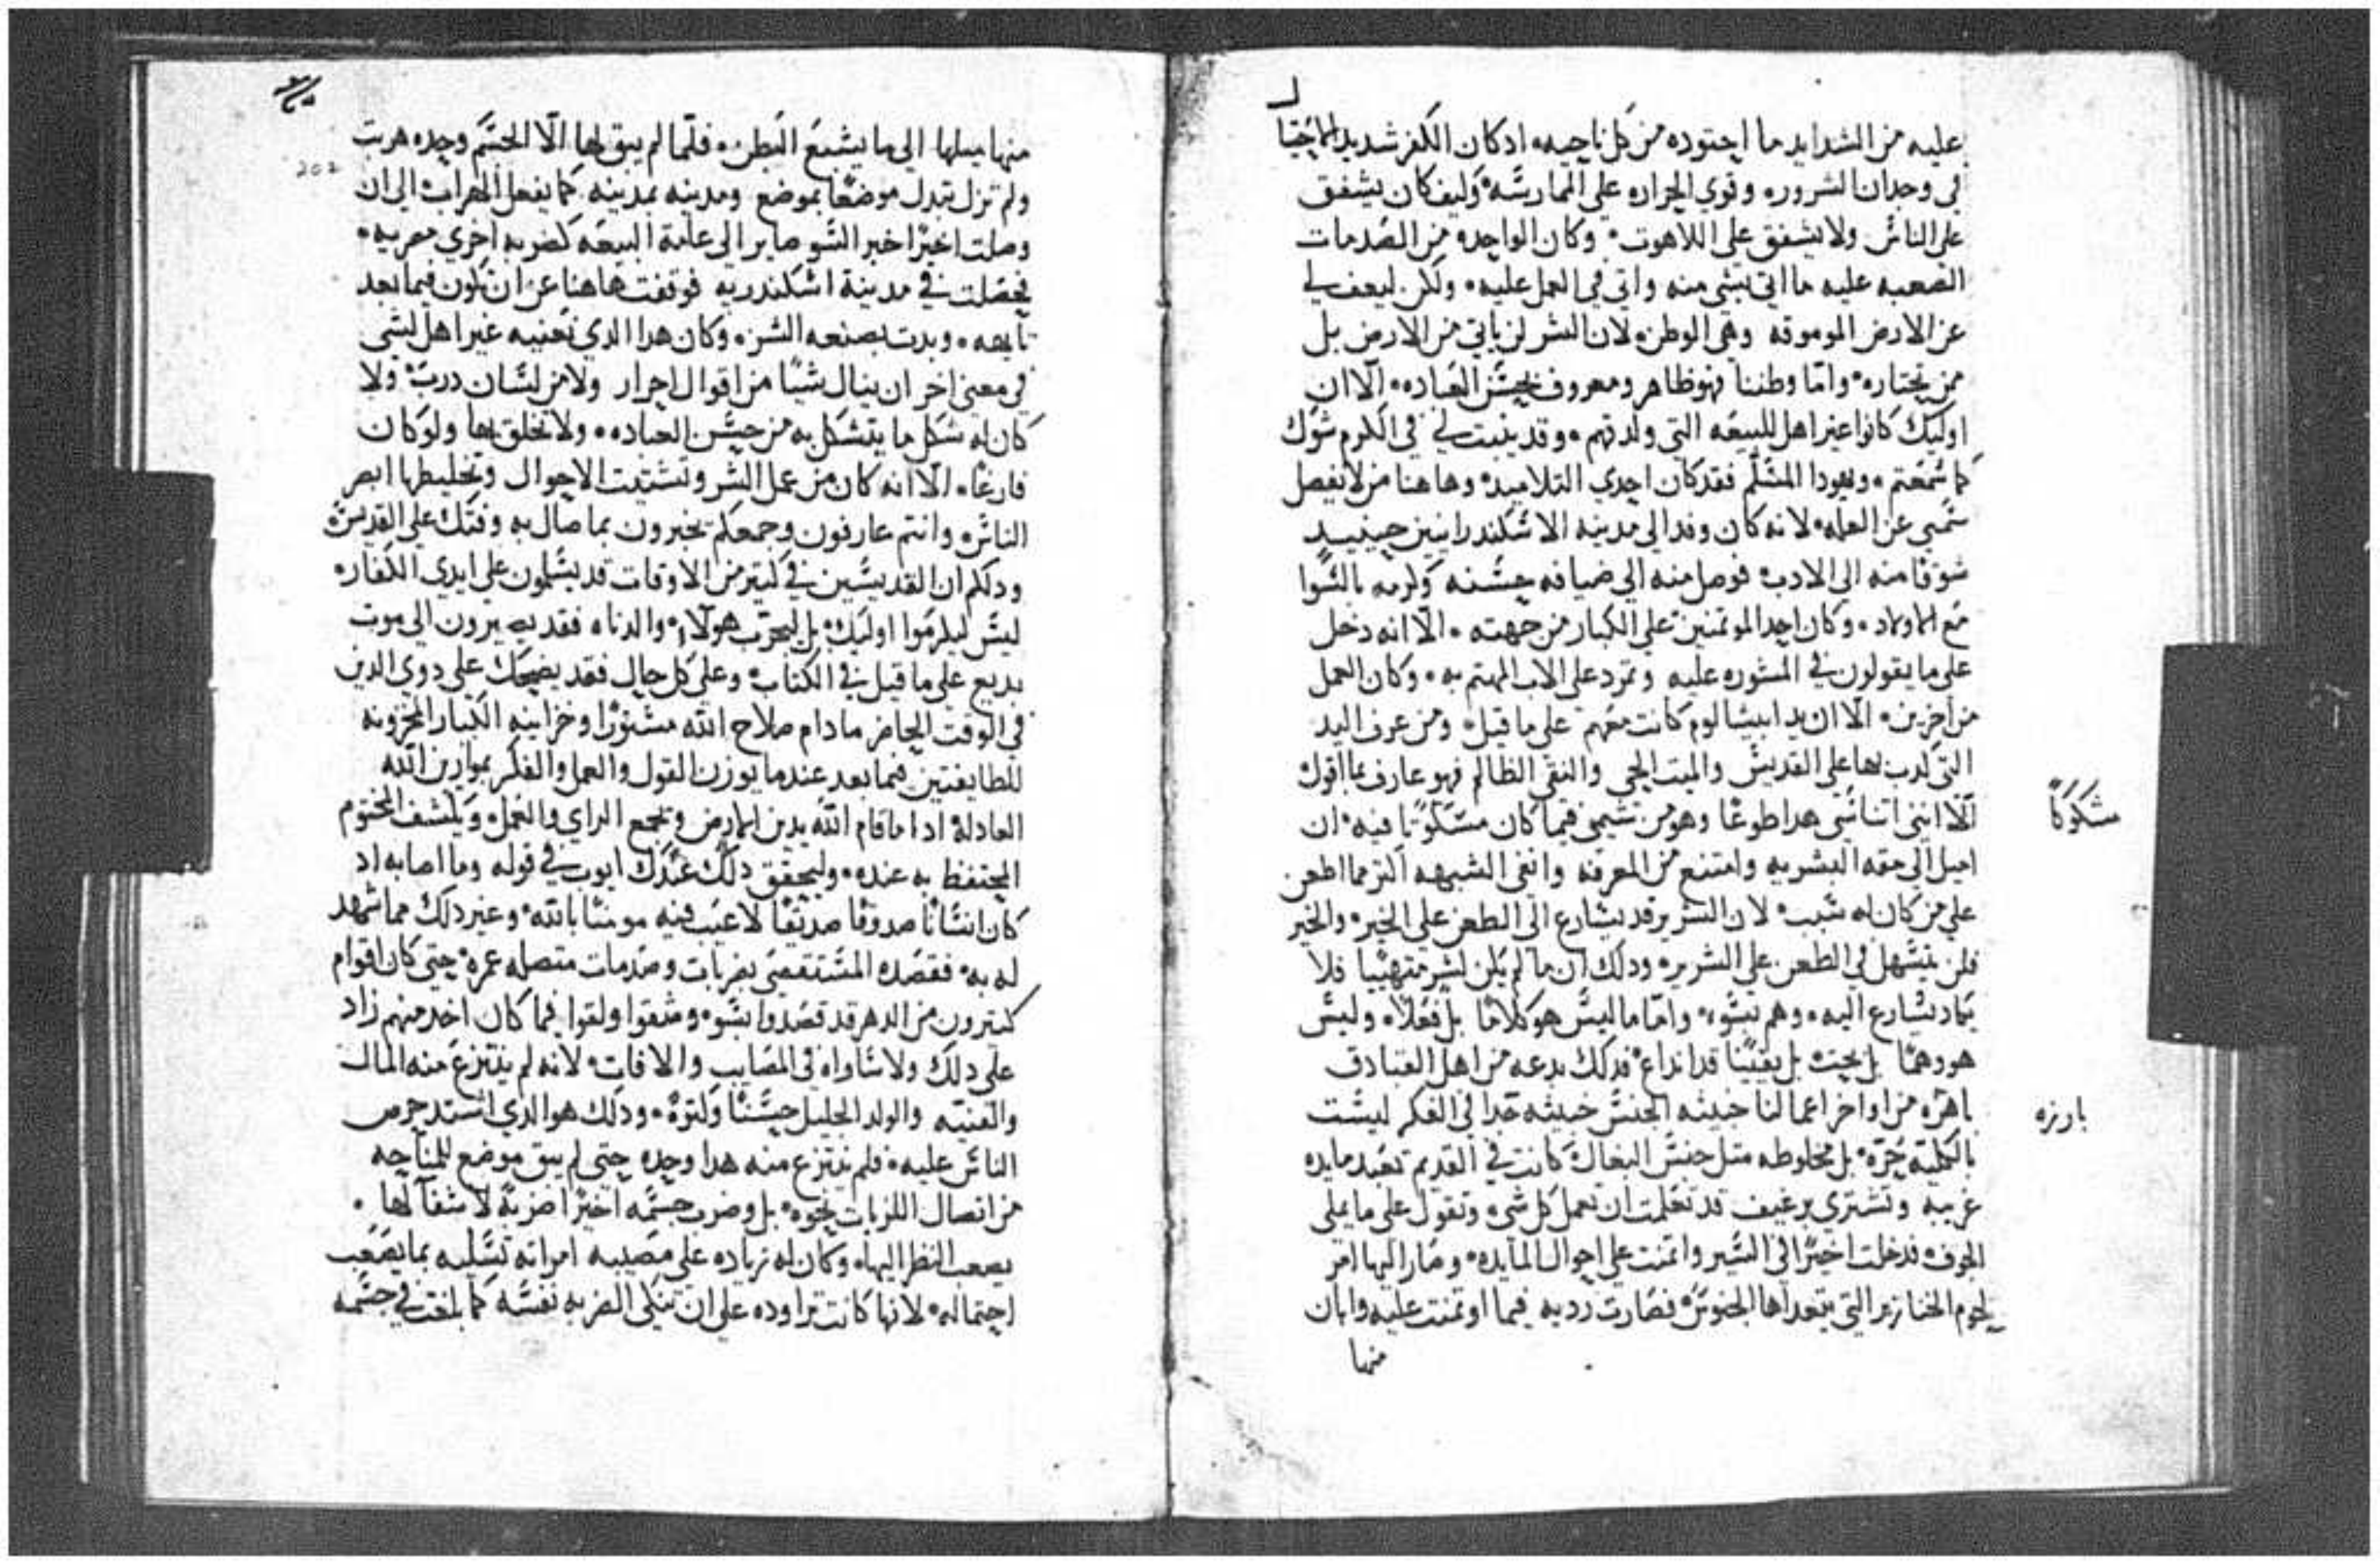 عليه من الشدايد ما احتوده من كل ناحيه اد كان الكفر شديد الاحتيا
في وحدان الشروره وقوي الجراره على الممارسه وليف كان يشفق
على الناس ولا يشفق على اللاهوت وكان الواحده من الصدمات
الصعبه عليه ما اتى بشي منه واتى في العمل عليه ولكن ليعف لي
عن الارض الموموقه وهي الوطن لان الشر لن ياتي من الارض بل
ممن يختاره واما وطننا فهو ظاهر ومعروف بحسن العباده الا ان
اوليك كانوا غير اهل للبيعه التي ولدتهم وقد ينبت لي في الكرم شوك
كما سمعتم ويهودا المسلم فقد كان احدي التلاميد وهاهنا من لا يفصل
سمي عن العله لانه كان وفد الي مدينه الاسكندرانيين حينيد
شوقا منه الي الادب فوصل منه الي ضيافه حسنه ولرمه بالسوا
مع الاولاد وكان احد الموتمنين على الكبار من جهته الا انه دخل
على ما يقولون في المشوره عليه وتمرد على الاب المهتم به وكان العمل
من اخرين الا ان يد ابيشالوم كانت معهم على ما قيل ومن عرف اليد
التي كدب بها على القديس والميت الحي والنفي الظالم فهو عارف بما اقول
الا انني اتناسى هدا طوعا وهو من شيمي فيما كان مشكوكا فيه ان
اميل الي حقه البشريه وامتنع من المعرفه وانفي الشبهه اكتر مما اطعن
علي من كان له سبب لان الشرير قد يسارع الى الطعن علي الخير والخير
فلن يتسهل في الطعن علي الشرير ودلك ان ما لم يكن لشر متهييا فلا
يكاد يسارع اليه وهم بسوء واما ما ليس هو كلاما بل فعلا وليس
هو دهما بل بحت بل يقينا قد انداع فدلك بدعه من اهل القبادق
باهره من اواخر اعمالنا خبيثه الجنس خبيثه جدا في الفكر ليست
بالكليه حره بل مخلوطه متل جنس البغال كانت في القديم تعبد مايده
غريبه وتشتري برغيف قد تعلمت ان تعمل كل شي وتقول على ما يملي
الجوف فدخلت اخيرا في السير واتمنت على احوال المايده وصار اليها امر
لحوم الخنازير التي يتعداها الجنوس فصارت رديه فيما اوتمنت عليه وابان
منها
مشكوكا
بارزه
202
منها ميلها الي ما يشبع البطن فلما لم يبق لها الا الجسم وحده هربت
ولم تزل تبدل موضعا بموضع ومدينه بمدينه كما يفعل الهراب الي ان
وصلت اخيرا خبر السو صاير الي عامة البيعه كضربه اخري مصريه
فحصلت في مدينة اسكندريه فوقفت هاهنا عن ان تكون فيما بعد
تايهه وبدت بصنعه الشر وكان هدا الدي نعنيه غير اهل لشي
في معني اخر ان ينال شيا من اقوال احرار ولا من لسان درب ولا
كان له شكل ما يتشكل به من حسن العباده ولا تخلق بها ولو كان
فارغا الا انه كان من عمل الشر وتشتيت الاحوال وتخليطها ابصر
الناس وانتم عارفون وجمعكم تخبرون بما صال به وفتك على القديس
ودلكم ان القديسين في كتير من الاوقات قد يسلمون على ايدي الكفار
ليس ليكرموا اوليك بل ليجرب هولاء والدناه فقد يصيرون الى موت
بديع على ما قيل في الكتاب وعلى كل حال فقد يضحك على دوي الدين
في الوقت الحاضر ما دام صلاح الله مستورا وخزاينه الكبار المخزونه
للطايفتين فيما بعد عندما يوزن القول والعمل والفكر بموازين الله
العادله ادا ما قام الله يدين الارض وتجمع الراي والعمل ويكشف المختوم
المحتفظ به عنده وليحقق دلك عندك ايوب في قوله وما اصابه اد
كان انسانا صدوقا صديقا لا عيب فيه مومنا بالله وغير دلك مما شهد
له به فقصده المستقصى بضربات وصدمات متصله عمره حتى كان اقوام
كتيرون من الدهر قد قصدوا بسو وشقوا ولقوا فما كان احد منهم زاد
علي دلك ولا ساواه في المصايب والافات لانه لم ينتزع منه المال
والقنيه والولد الجليل حسنا وكتره ودلك هو الدي اشتد حرص
الناس عليه فلم ينتزع منه هدا وحده حتى لم يبق موضع للمناحه
من اتصال اللزبات بنحوه بل وضرب جسمه اخيرا ضربة لا شفا لها
يصعب النظر اليها وكان له زياده على مصيبه امراته تسليه بما يصعب
احتماله لانها كانت تراوده علي ان تنكى الضربه نفسه كما بلغت في جسمه